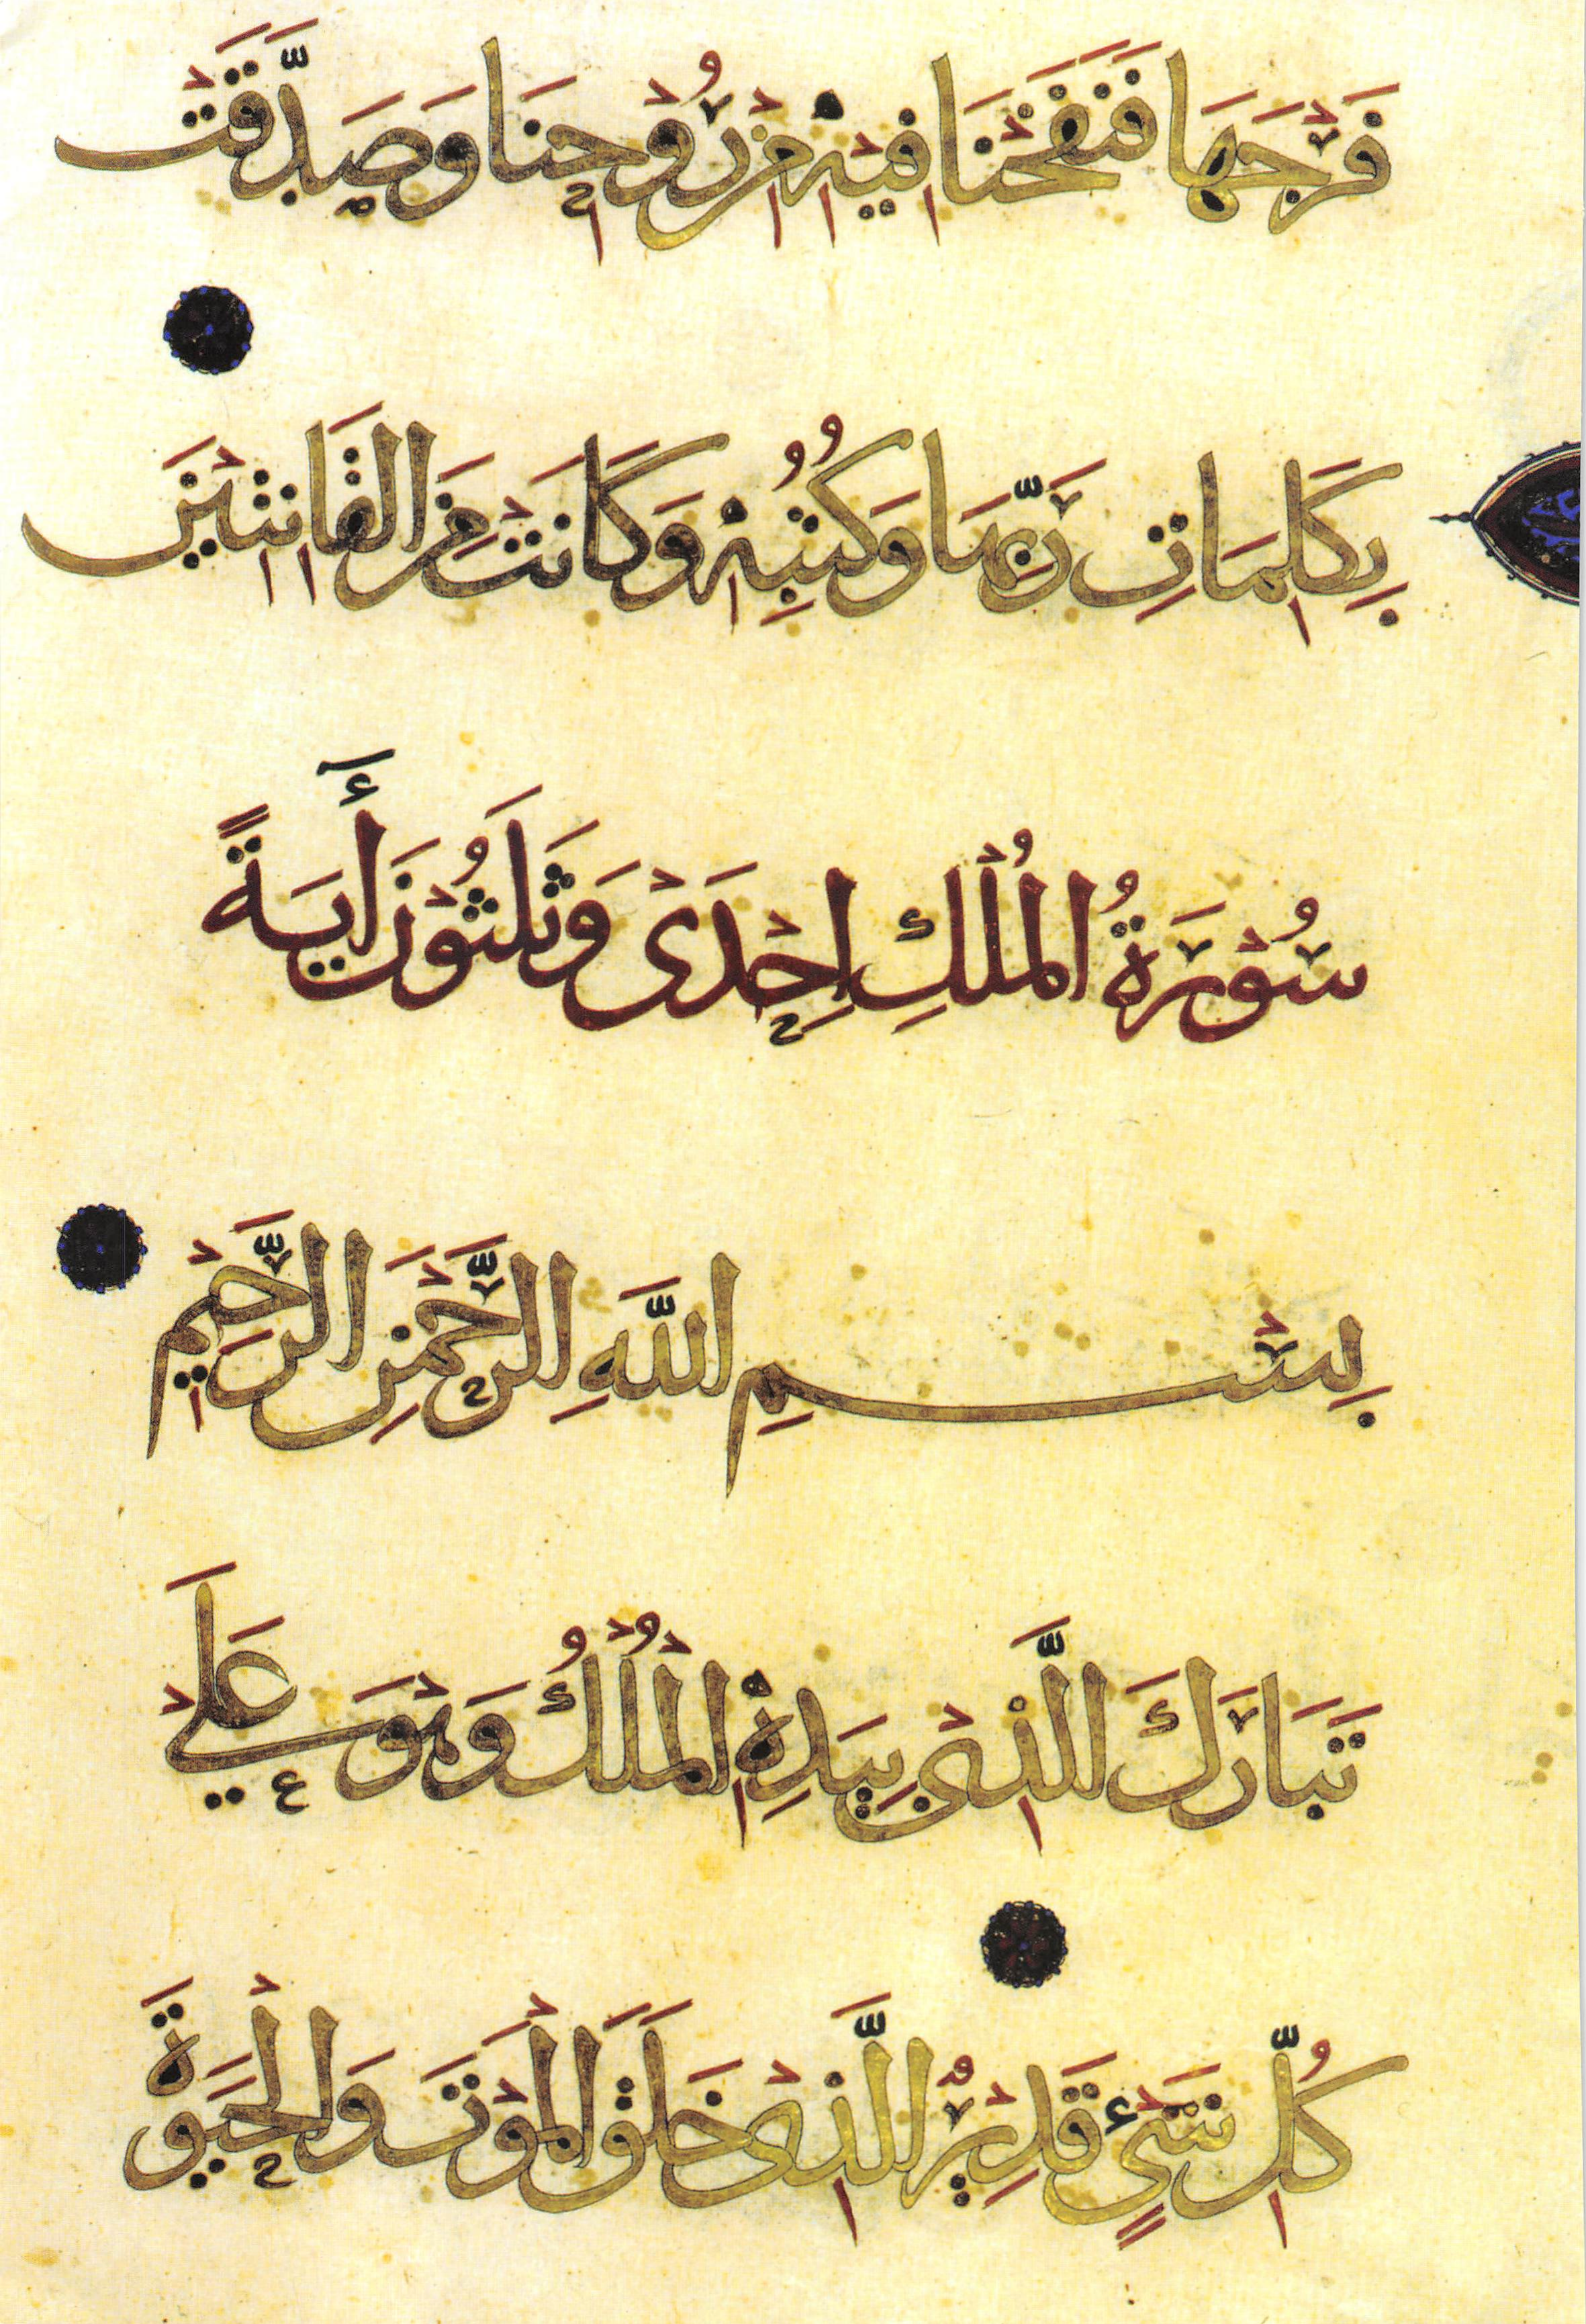 فَرْجَهَا فَنَفَخْنَا فِيْهِ مِنْ رُوْحِنَا وَصَدَّقَتْ
بِكَلِمَاتِ رَبِّهَا وَكُتُبِهِ وَكَانَتْ مِنَ الْقَانِتِيْنَ
سُوْرَةُ الْمُلْكِ اِحْدَىْ وَثَلٰثُوْنَ أٰيَةً
بِسْمِ اللَّهِ الرَّحْمَنِ الرَّحِيْمِ
تَبَارَكَ الَّذِىْ بِيَدِهِ الْمُلْكُ وَهْوَ عَلَىْ
كُلِّ شَيْءٍ قَدِيْرٌ الَّذِىْ خَلَقَ الْمَوْتَ وَالْحَيَوةَ